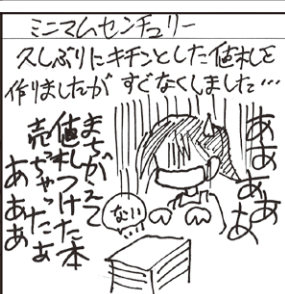 ミニマムセンチュリー
久しぶりにキチンとした値札を
作りましたが すぐなくしました…
ああああああ
ない…
まちがえて
値札つけた本
売っちゃったぁ
あああ